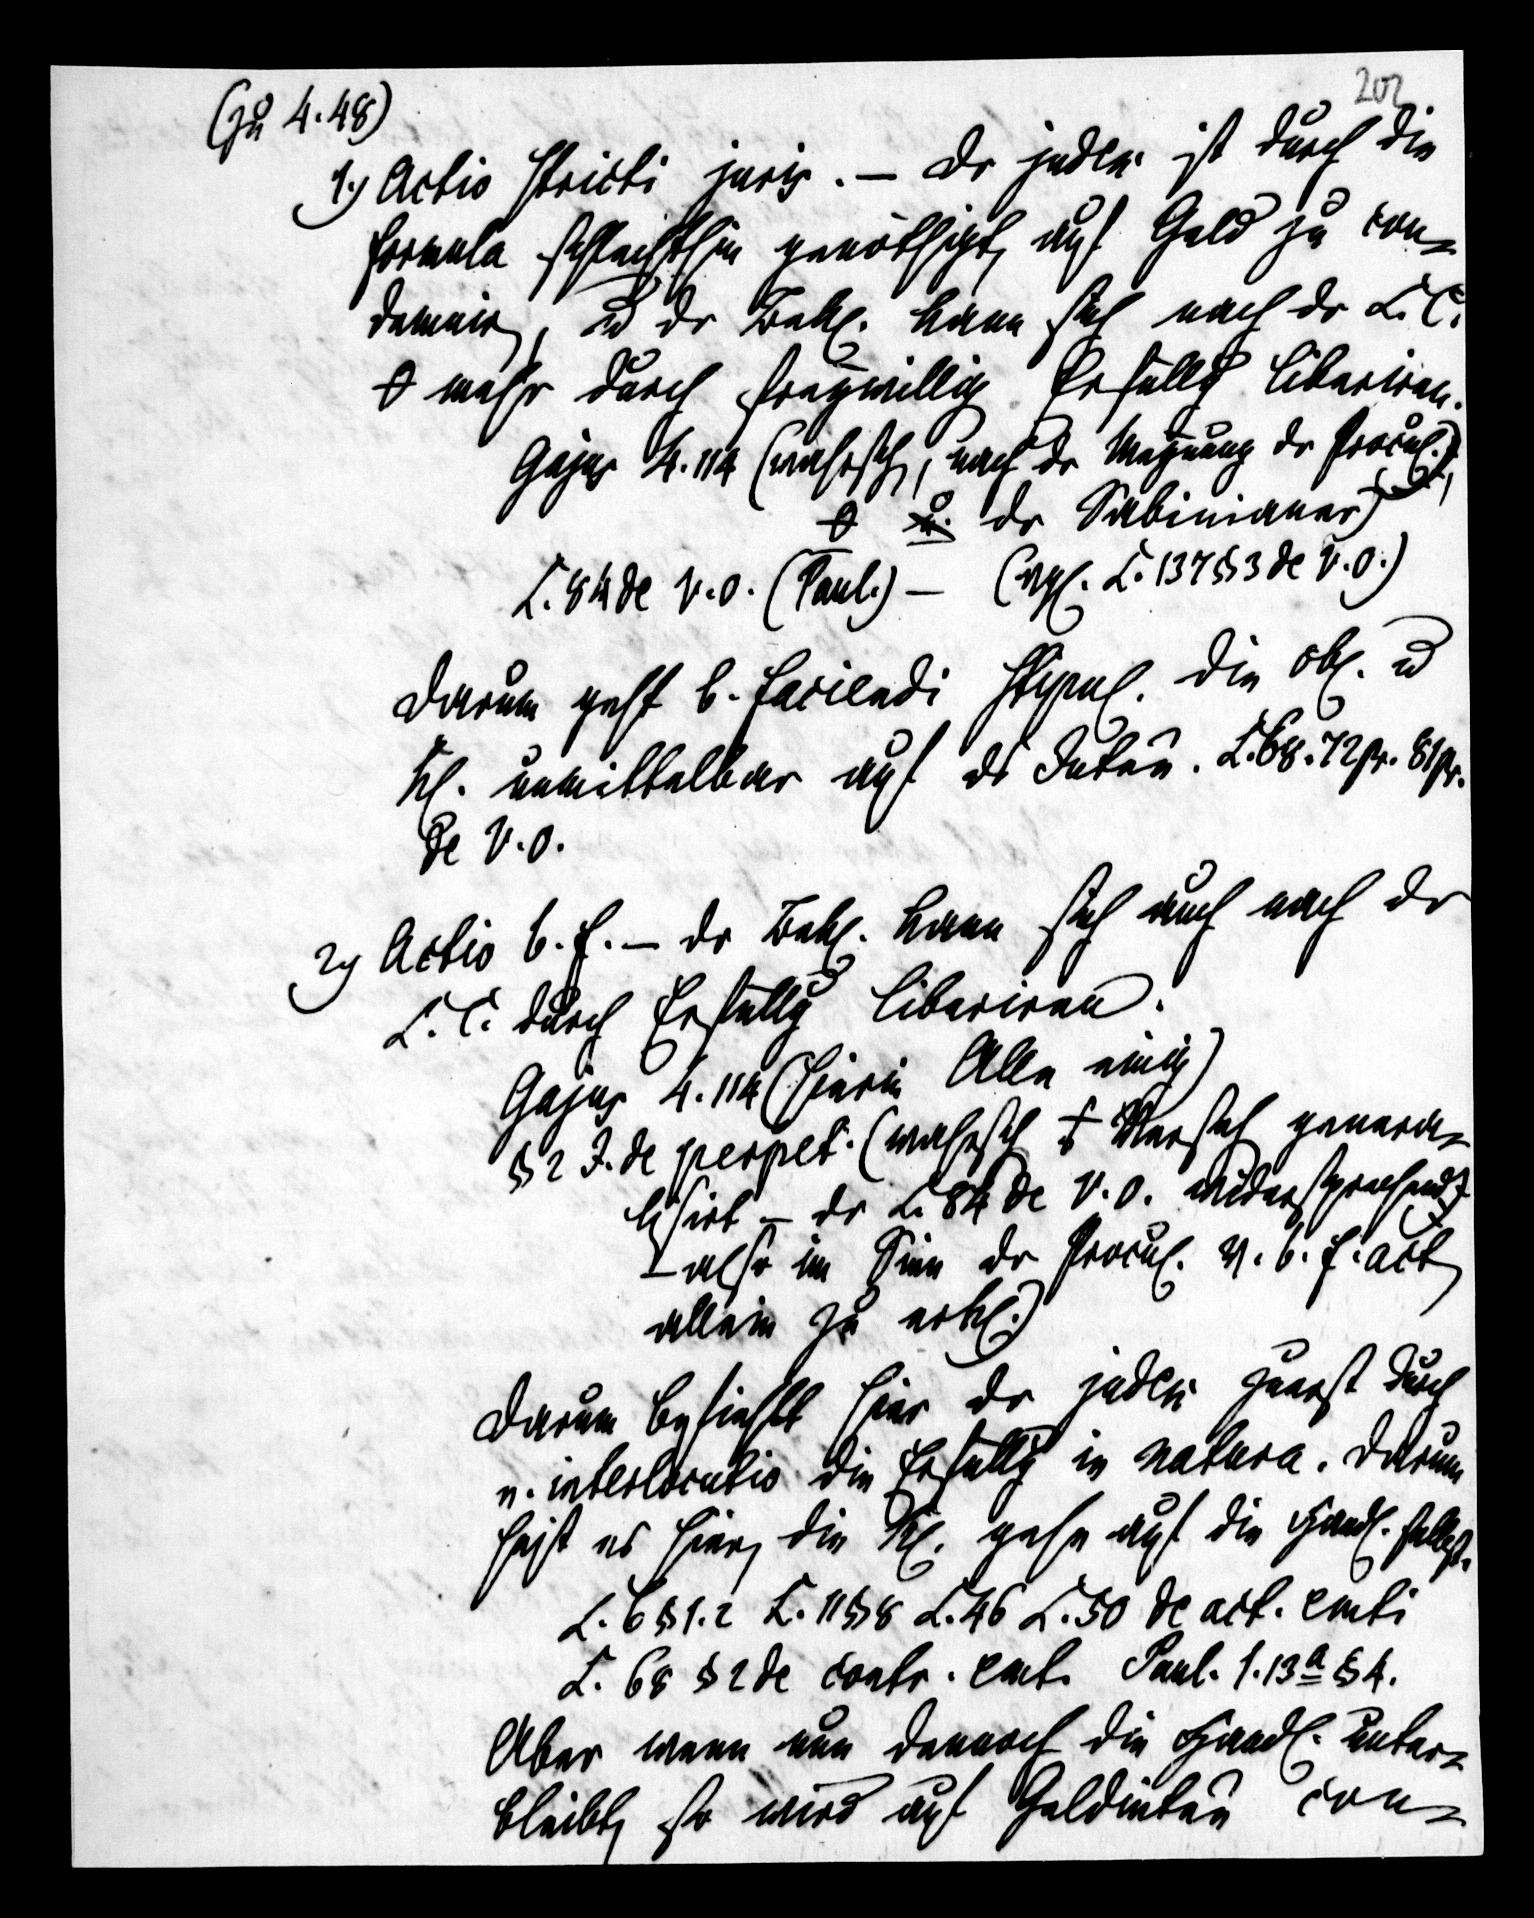 202
(zu 4.48)
1) Actio stricti juris. – Dr judex ist durch die
formula schlechthin genöthigt, auf Geld zu con-
demnir, u dr Bekl. kann sich nach dr L. C.
θ mehr durch freywillig Erfüllg liberiren.
Gajus 4.114 (wahrsch, nach dr Meynung dr Procul.),
θ dr Sabinianer)
L. 84 de V.O. (Paul.) – (vgl. L. 137 § 3 de V.O.)
Darum geht b. faciendi stipul. die obl. u
Kl. unmittelbar auf ds Inter. L. 68. 72 pr. 81 pr.
de V.O.
2) Actio b. f. – dr Bekl. kann sich auch nach dr
L. C. durch Erfüllg liberiren.
Gajus 4.114 (hierin Alle einig)
§ 2 J. de perpet. (wahrsch Versteh genera-
lisirt – dr L. 84 de V.O. widersprechend)
– also im Sinn dr Procul. v. b. f. act
allein zu erkl.)
Darum befiehlt hier dr judex zuerst durch
e. interlocutio die Erfüllg in natura. Darum
heißt es hier, die Kl. gehe auf die Handl. selbst.
L. 6 § 1. 2 L. 11 § 8 L. 46 L. 50 de act. emti
L. 68 § 2 de contr. emt. Paul. 1. 13ª § 4.
Aber wenn nun dennoch die Handl. unter-
bleibt, so wird auf Geldinter con-